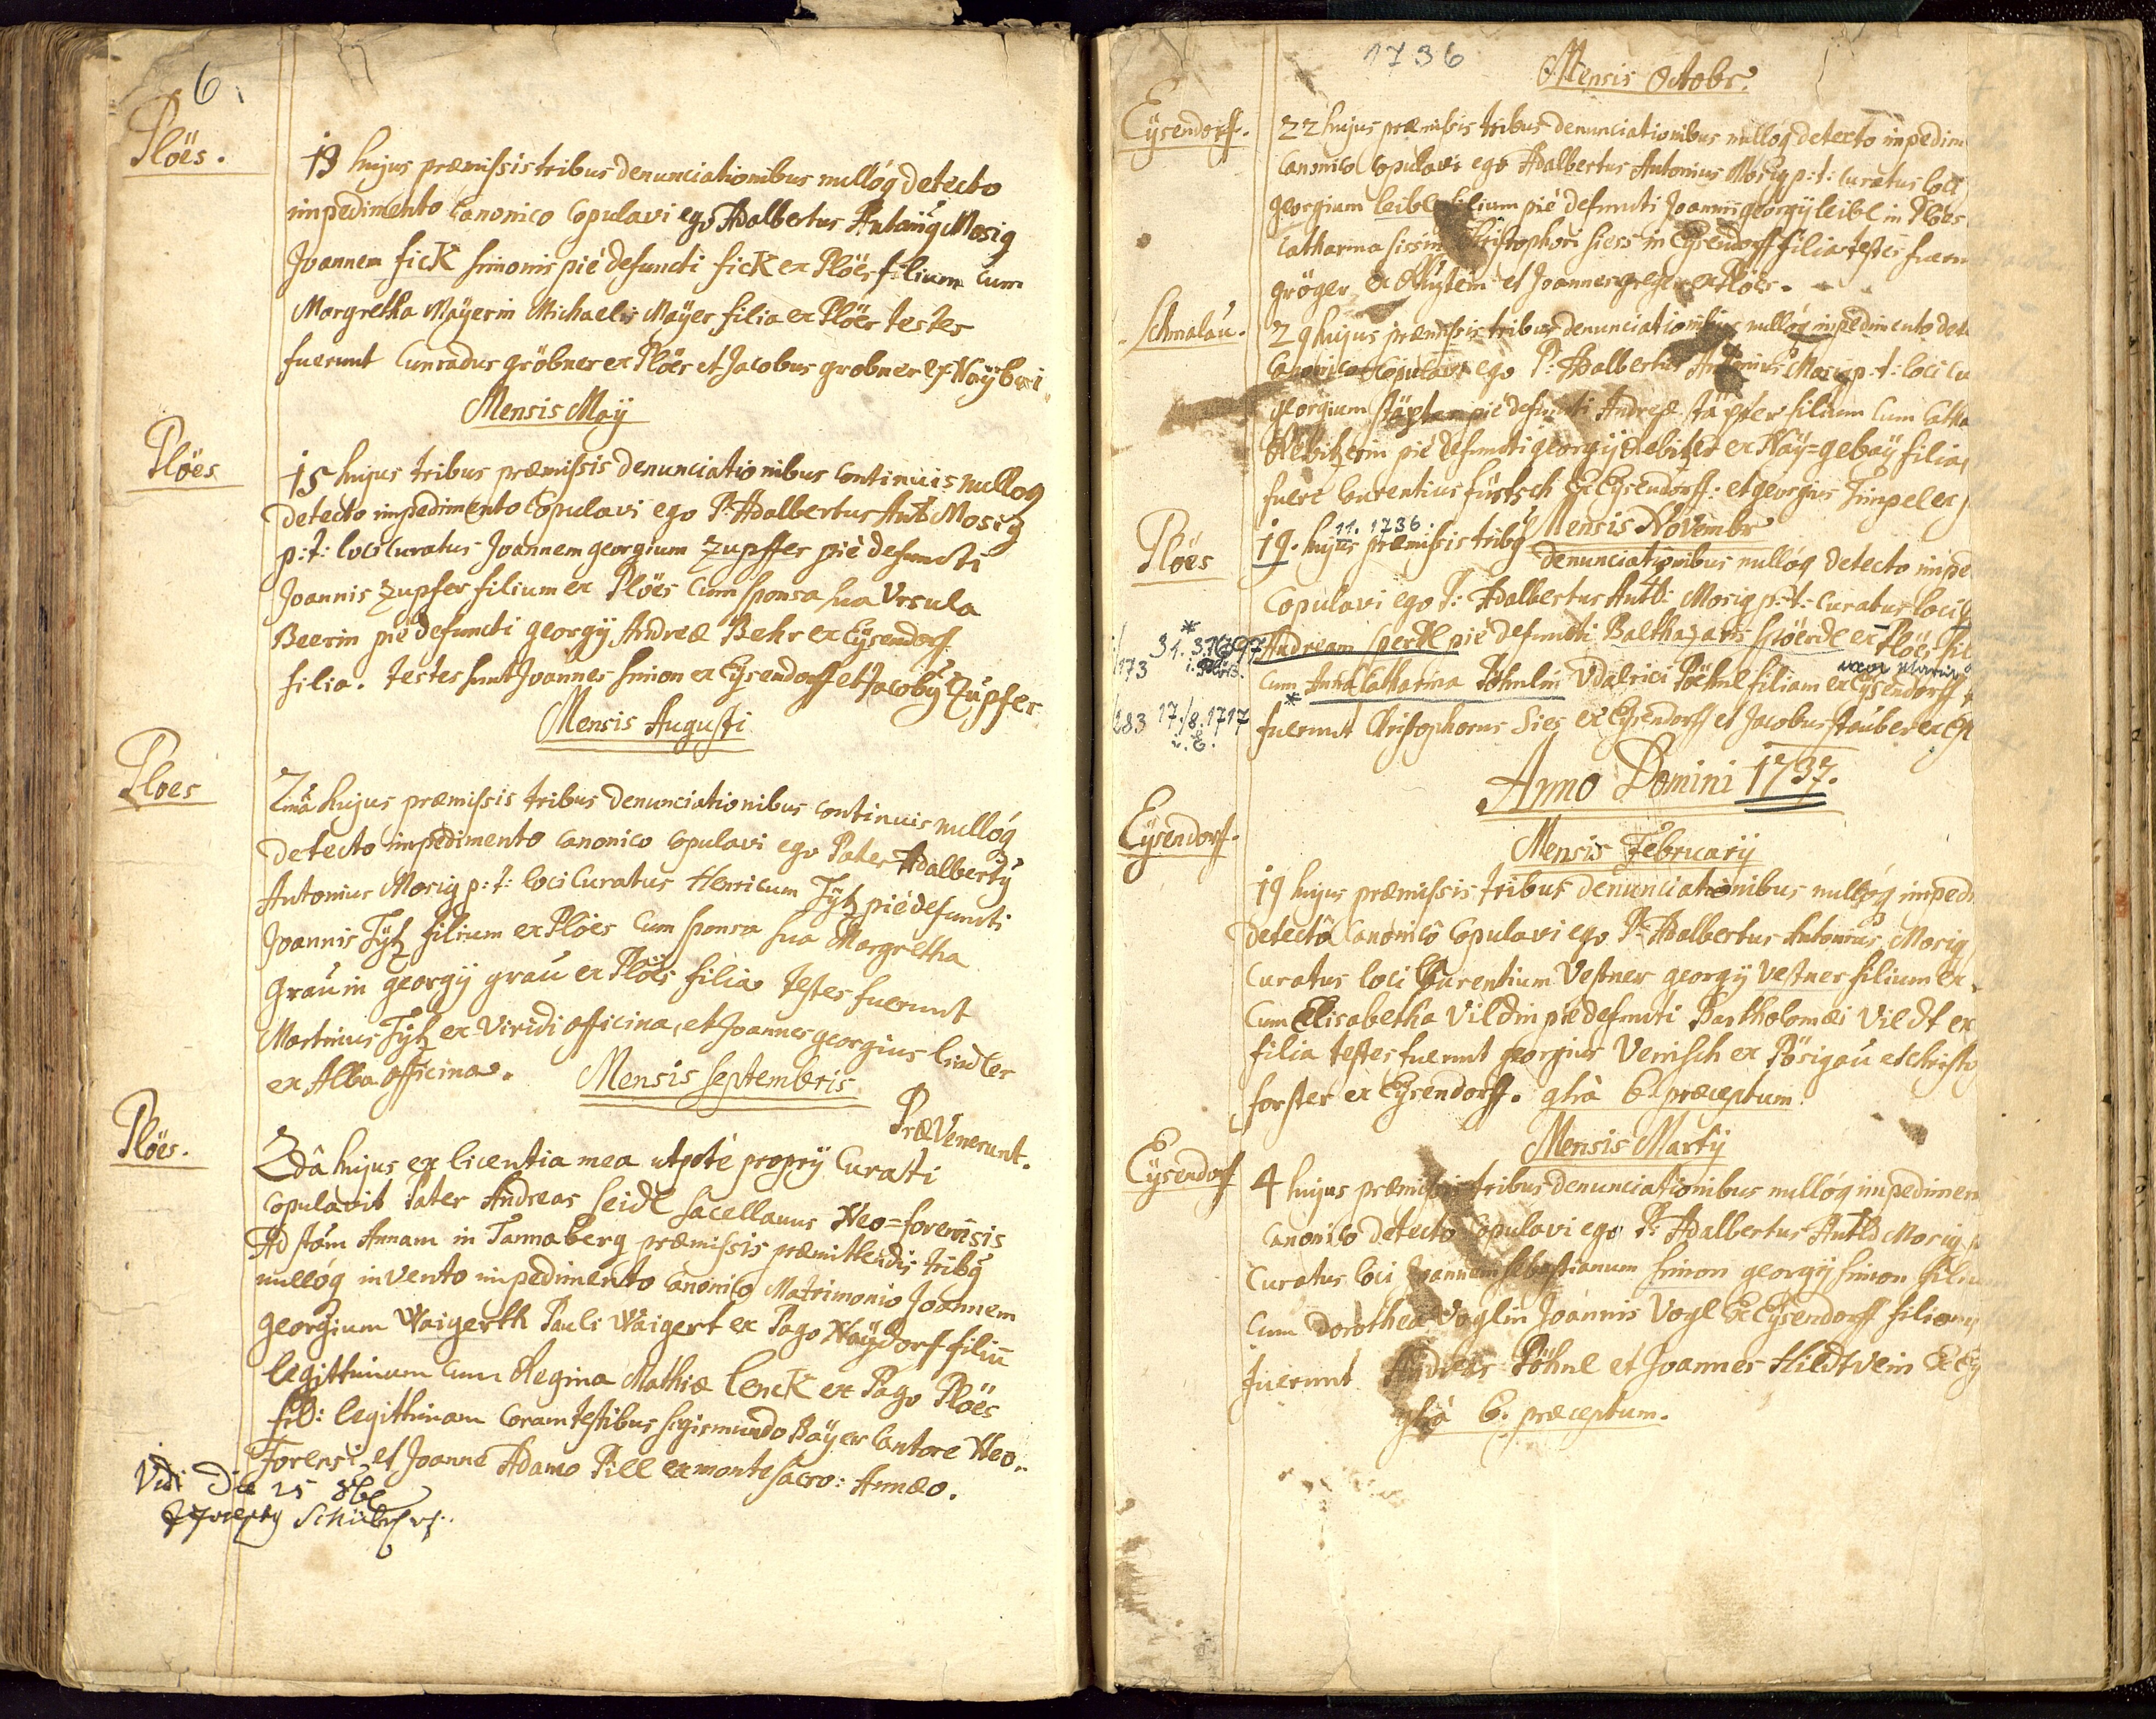 6
Plöes.
13 hujus præmissis tribus denunciationibus nullóq detecto
impedimento Canonico Copulavi ego Adalbertus Antonig Mosig
Joannem fick simonis piè defuncti fick ex Plöes filium cum
Margretha Mayerin Michaelis Mayer filia ex Plöes testes
fuerunt Cunradus gröbner ex Plöes et Jacobus grobner ex
Mensis Maÿ
Plöes
15 hujus tribus præmissis denunciationibus continuis nulloq
detecto impedimento Copulavi ego P. Adalbertus Ant: Mosig
p:t: loci Curatus Joannem georgium Zupffer piè defuncti
Joannis Zupfer filium ex Plöes cum sponsa sua Vrsula
Beerin piè defuncti georgÿ Andreæ Behr ex Eÿsendorf
filia. testes sunt Joannes simon ex Eÿsendorff et Jacobg Zupfer
Mensis Augusti
Ploes
2ma hujus præmissis tribus denunciationibus continuis nullóq
detecto impedimento canonico copulavi ego Pater Adalbertg
Antonius Mosig p:t: loci Curatus Henricum Tÿtz piè defuncti
Joannis Tÿtz filium ex Plöes cum sponsa sua Margretha
Grauin georgÿ grau ex Plöes filia testes fuerunt
Martinus Tÿtz ex Viridi officina, et Joannes georgius lindler
ex Alba officina.
Mensis septembris
Prævenerunt.
Plöes.
2dâ hujus ex licentia mea utpotè propriÿ Curati
copulavit Pater Andreas seidl sacellanus Neo=forensis
Ad stam Annam in Tannaberg præmissis præmittendis tribg
nullóq invento impedimento canonico Matrimonio Joannem
georgium Waigerth Pauli Waigert ex Pago Naÿdorf filiu
legittimum cum Regina Mathiæ lenck ex Pago Plöes
fil: legittimam coram testibus sigismundo Baÿer Cantore Neo..
Forensi et Joanne Adamo Pill ex monte sacro: Annæo.
Vidi Die 25 8be
1736
Mensis Octobr.
Eÿsendorff.
22 hujus præmissis tribus denunciationibus nullóq detecto impedim
canonico Copulavi ego Adalbertus Antonius Mosig p:t: Curatus loci
georgium leibl filium piè defuncti Joannis georgÿ leibl in Plöes
Catharina sissin Christophori siess in Eÿsendorff filia testes fuerun
gröger ex et Joannes greger ex Plöes.
Schmalau.
29 hujus præmissis tribus denunciationibus nullóq impedimento dete
Canonico Copulavi ego P: Adalbertus Antonius Mosig p:t: loci Cu
georgium stäpfer piè defuncti Andreæ stäpfer filium cum Catha
Rebitzerin piè defuncti georgÿ Rebitzer ex Naÿ=gebaÿ filia,
fuere laurentius fürtsch ex Eÿsendorff: et georgius Timpel ex
Mensis Novembr
11. 1736.
Plöes
19. hujus præmissis tribg
denunciationibus nullóq detecto impe
Copulavi ego P: Adalbertus Antō: Mosig p:t: Curatus loci
* 31.3.1697
173
i. Plös.
Andream perdl piè defuncti Balthazaris spöerdl ex Plöes fil
cum Anna Catharina Pöhnlin Vdalrici Pöehnl filiam ex Eÿsendorff
*
283 17./8.1717
fuerunt Christophorus Sies ex Eÿsendorff et Jacobus stauber ex Eÿ
Anno Domini 1737.
Mensis Februarÿ
Eÿsendorff.
19 hujus præmissis tribus denunciationibus nullóq impedi
detectô canonicô Copulavi ego P. Adalbertus Antonius Mosig
Curatus loci laurentium Vestner georgÿ Vestner filium ex
Cum Elisabetha Vildin piè defuncti Bartholomæi Vildt ex
filia testes fuerunt georgius Venisch ex Pösigau et Christo
forster ex Eÿsendorff. gtrà 6. præceptum.
Mensis Martÿ
Eÿsendorf
4 hujus præmissis tribus denunciationibus nullóq impedimen
canonico detecto Copulavi ego P: Adalbertus Antō Mosig p
Curatus loci Joannem sebastianum simon georgÿ simon filiu
Cum Dorothea Voglin Joannis Vogl Ex Eÿsendorff filiam
fuerunt Andreas Pöhnl et Joannes Hildtvein Ex Eÿ
gtrà 6. præceptum.